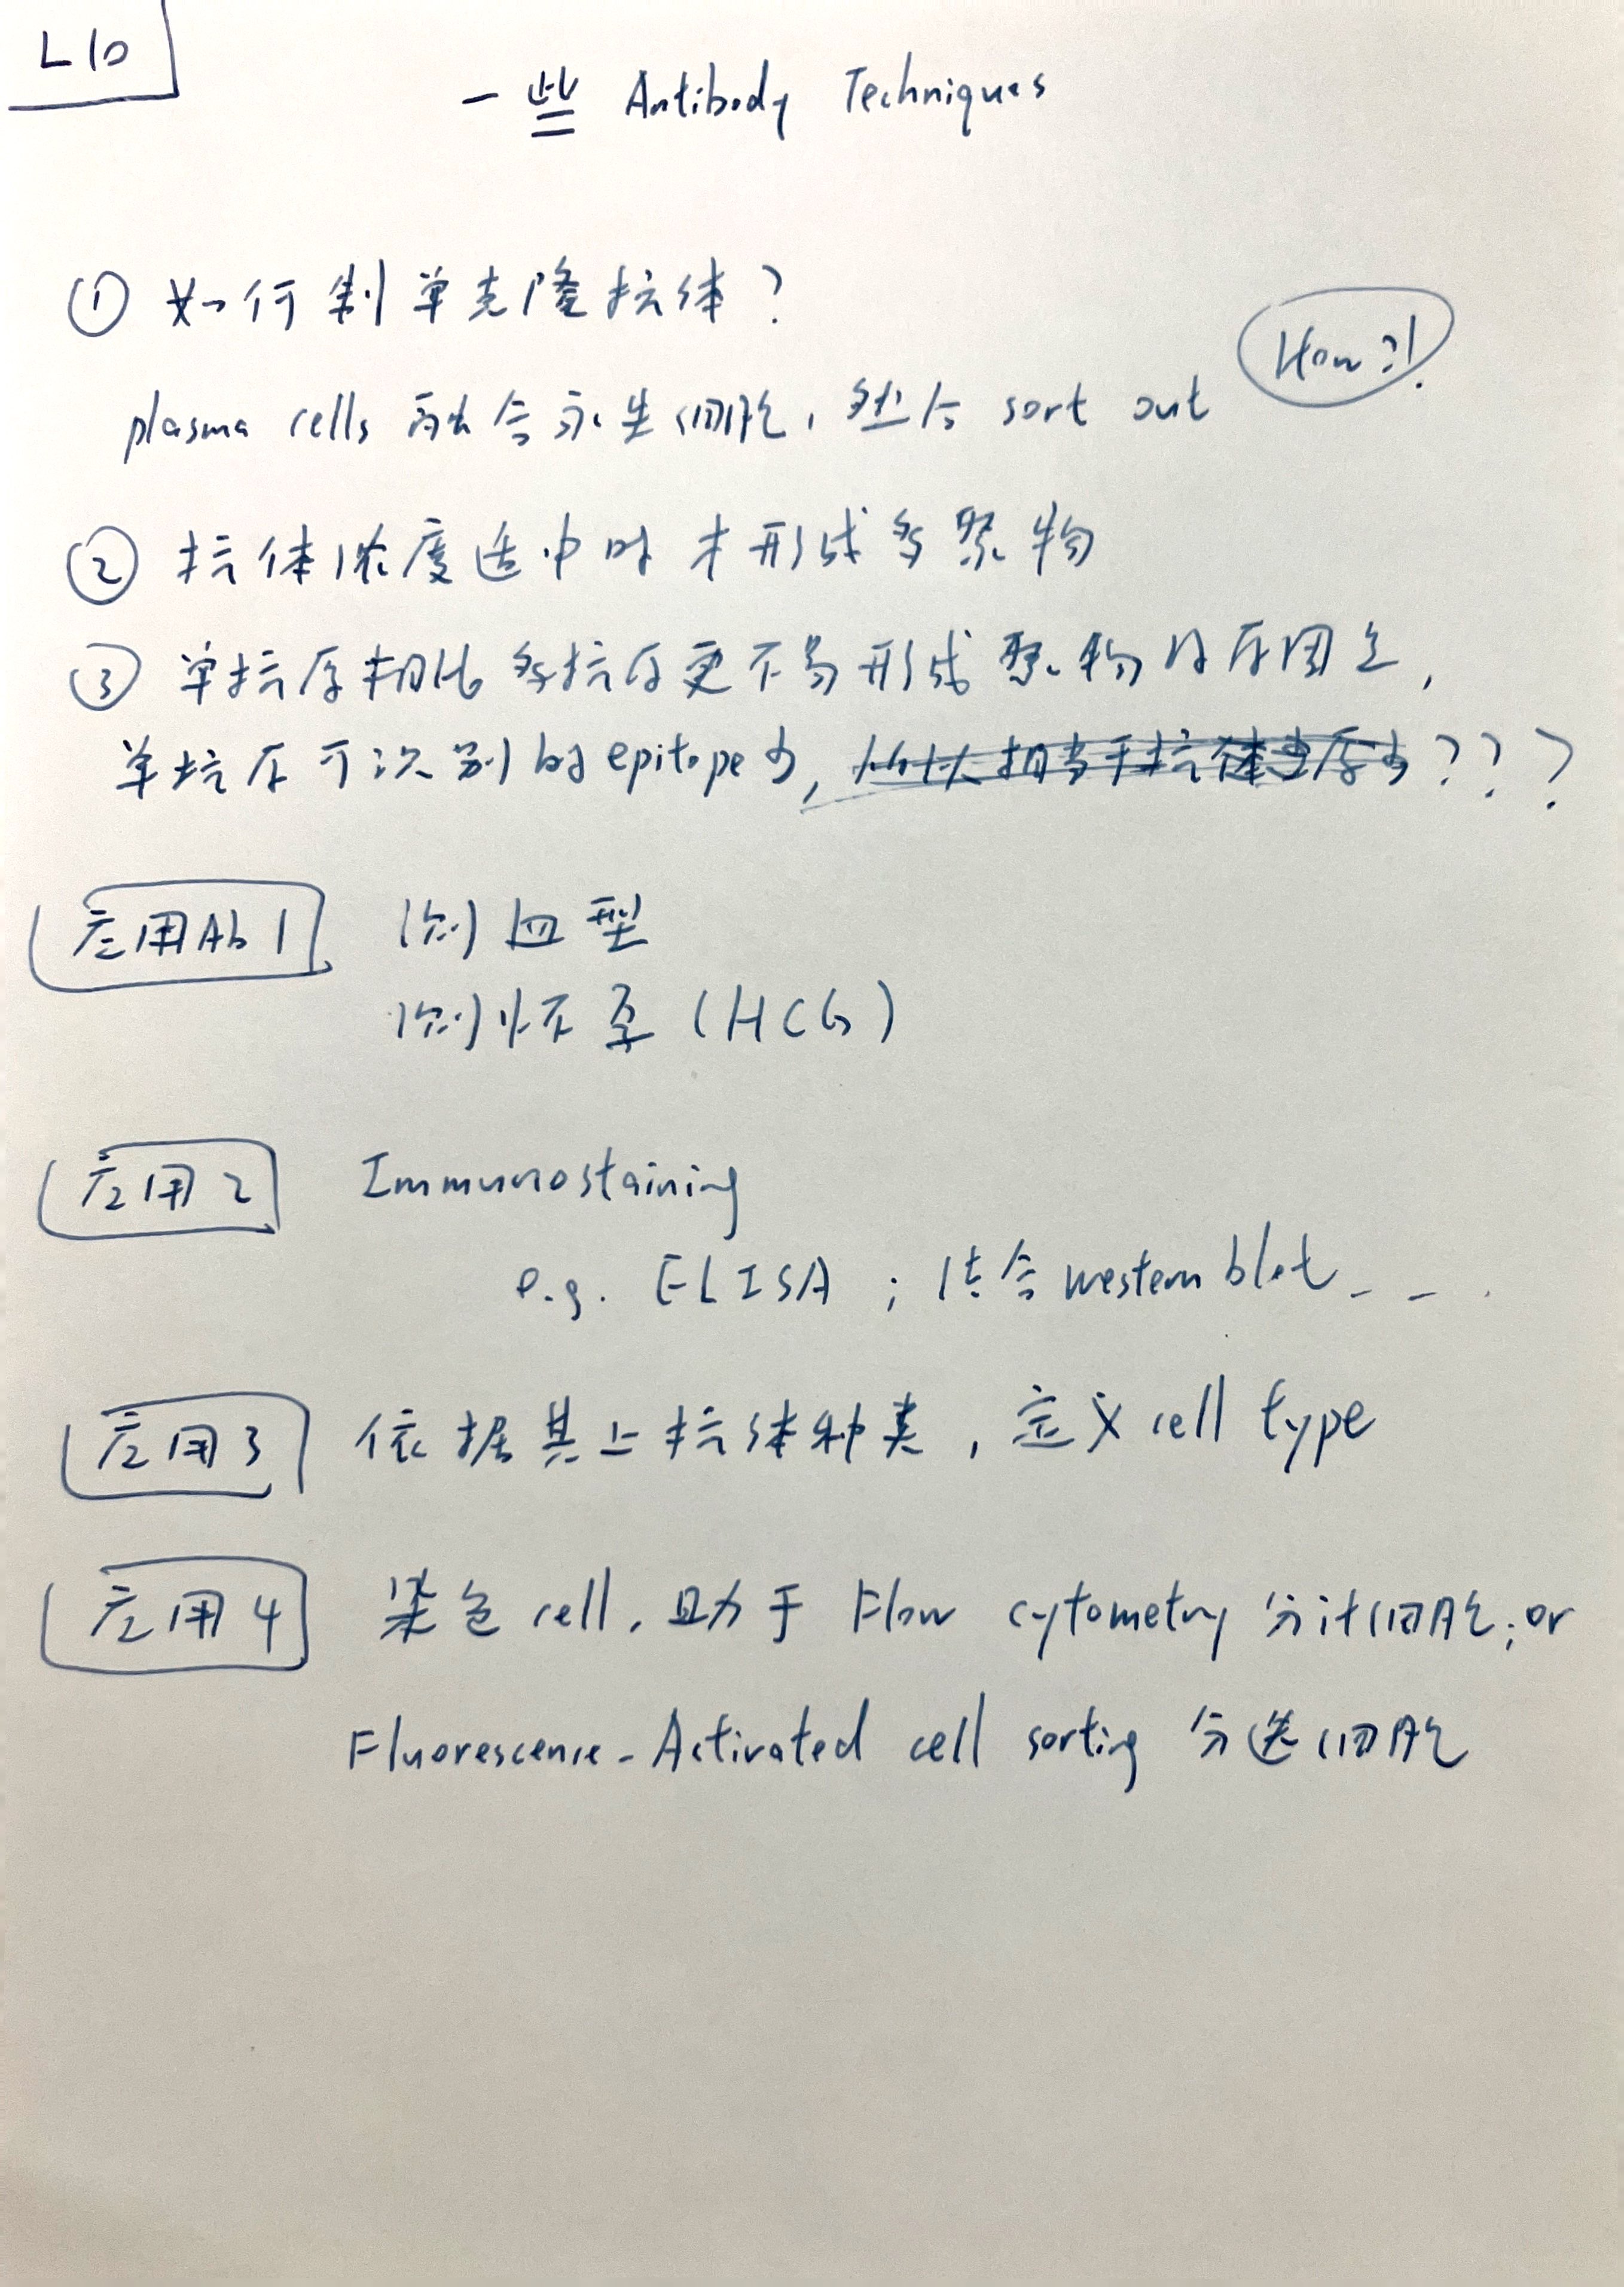 L10
一些 Antibody Techniques
① 如何制单克隆抗体?
How?!
plasma cells 融合永生细胞, 然后 sort out
② 抗体浓度适中时才形成多聚物
③ 单抗原相比多抗原更不易形成聚物的原因是,
单抗原可识别的 epitope 少, 所以相当于抗体当原少???
应用Ab 1 测血型
测怀孕 (HCG)
应用2 Immunostaining
e.g. ELISA ; 结合 western blot...
应用3 依据其上抗体种类, 定义 cell type
应用4 染色 cell, 助于 Flow cytometry 分计细胞; or
Fluorescence-Activated cell sorting 分选细胞